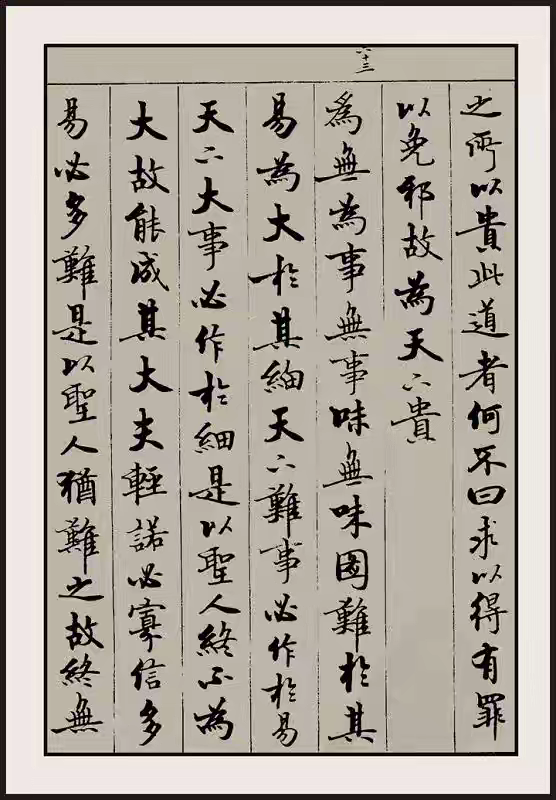 之所以貴此道者何不曰求以得有罪
以免邪故為天下貴
六十三
爲無為事無事味無味圖難於其
易為大於其細天下難事必作於易
天下大事必作於細是以聖人終不為
大故能成其大夫輕諾必寡信多
易必多難是以聖人猶難之故終無